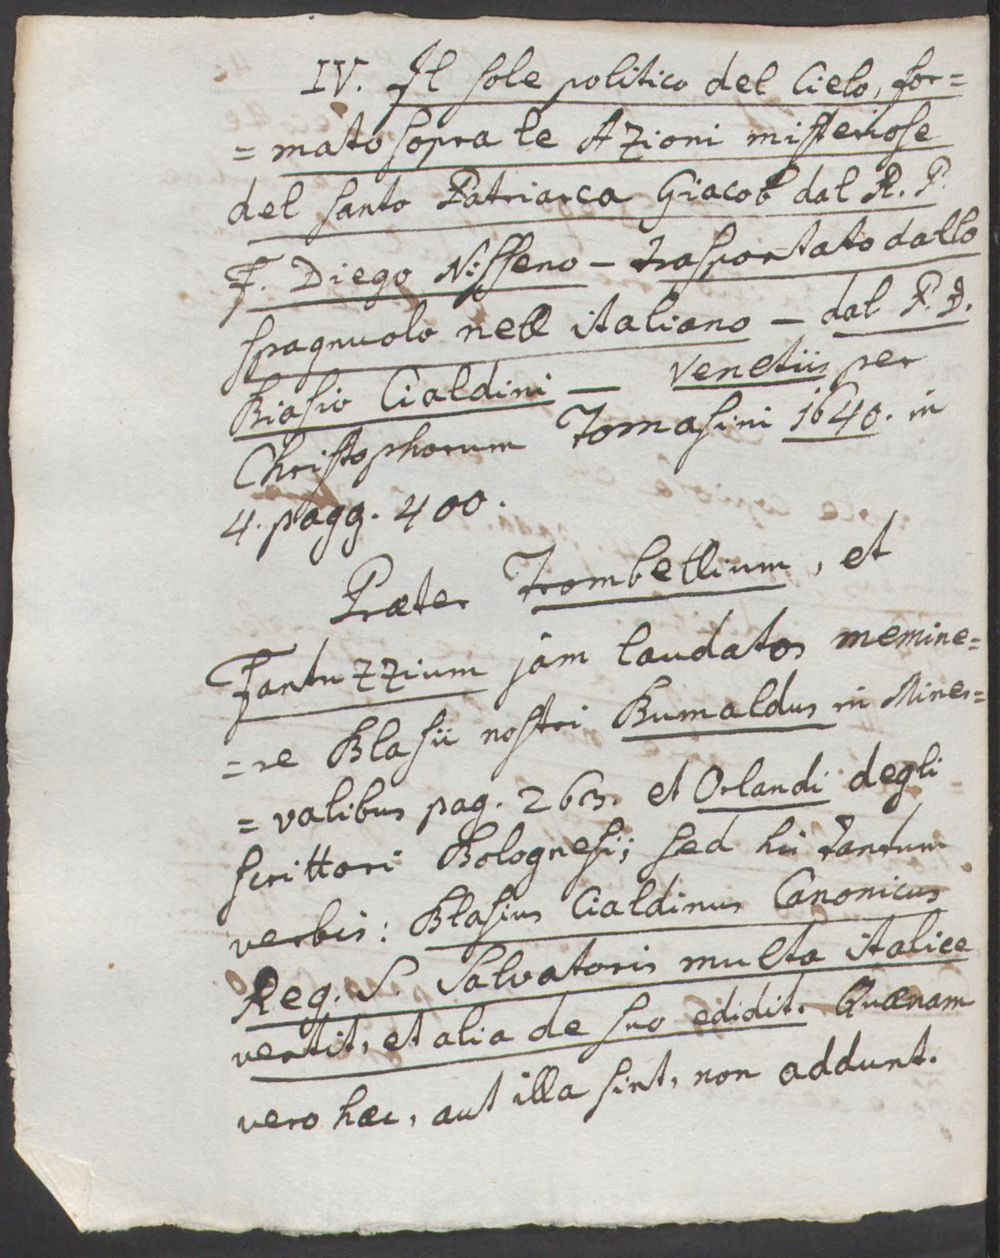 IV. Il sole politico del Cielo, for=
= mato sopra le Azioni misteriose
del santo Patriarca Giacob dal R. P.
F. Diego Nisseno – trasportato dallo
spagnuolo nell italiano – dal P. D.
Biasio Cialdini — Venetiis per
Christophorum Tomasini 1640. in
4. pagg. 400.
Præter Trombellium, et
Fantuzzium jam laudatos memine=
=re Blasii nostri Bumaldus in Miner=
= valibus pag. 263. et Orlandi degli
scrittori Bolognesi; sed hii tantum
verbis: Blasius Cialdinus Canonicus
Reg. S. Salvatoris multa italice
vertit, et alia de suo edidit. Quænam
vero hæc, aut illa sint, non addunt.